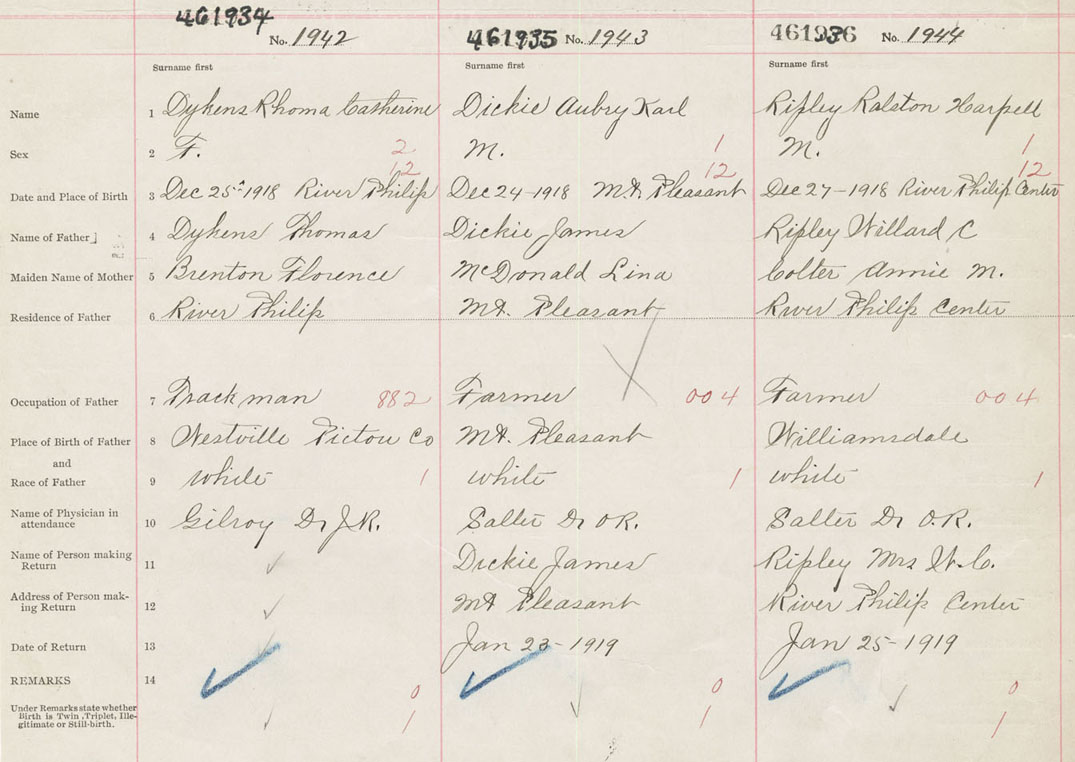 461934 No. 1942 461935 No. 1943 461936 No. 1944
Surname first Surname first Surname first
Name 1 Dykens Rhoma Catherine Dickie Aubry Karl Ripley Ralston Harpell
Sex 2 F. 2 M. 1 M. 1
12 12 12
Date and Place of Birth 3 Dec 25th 1918 River Philip Dec 24-1918 Mt. Pleasant Dec 27-1918 River Philip Center
Name of Father 4 Dykens Thomas Dickie James Ripley Willard C
Maiden Name of Mother 5 Brenton Florence McDonald Lina Colter Annie M.
Residence of Father 6 River Philip Mt. Pleasant River Philip Center
Occupation of Father 7 Trackman 882 Farmer 004 Farmer 004
Place of Birth of Father 8 Westville Pictou Co Mt. Pleasant Williamsdale
and
Race of Father 9 white 1 white 1 white 1
Name of Physician in
attendance 10 Gilroy Dr J.R. Salter Dr O.R. Salter Dr O.R.
Name of Person making
Return 11 Dickie James Ripley Mrs W.C.
Address of Person mak-
ing Return 12 Mt Pleasant River Philip Center
Date of Return 13 Jan 23-1919 Jan 25-1919
REMARKS 14
0 0 0
Under Remarks state whether
Birth is Twin, Triplet, Ille-
gitimate or Still-birth. 1 1 1